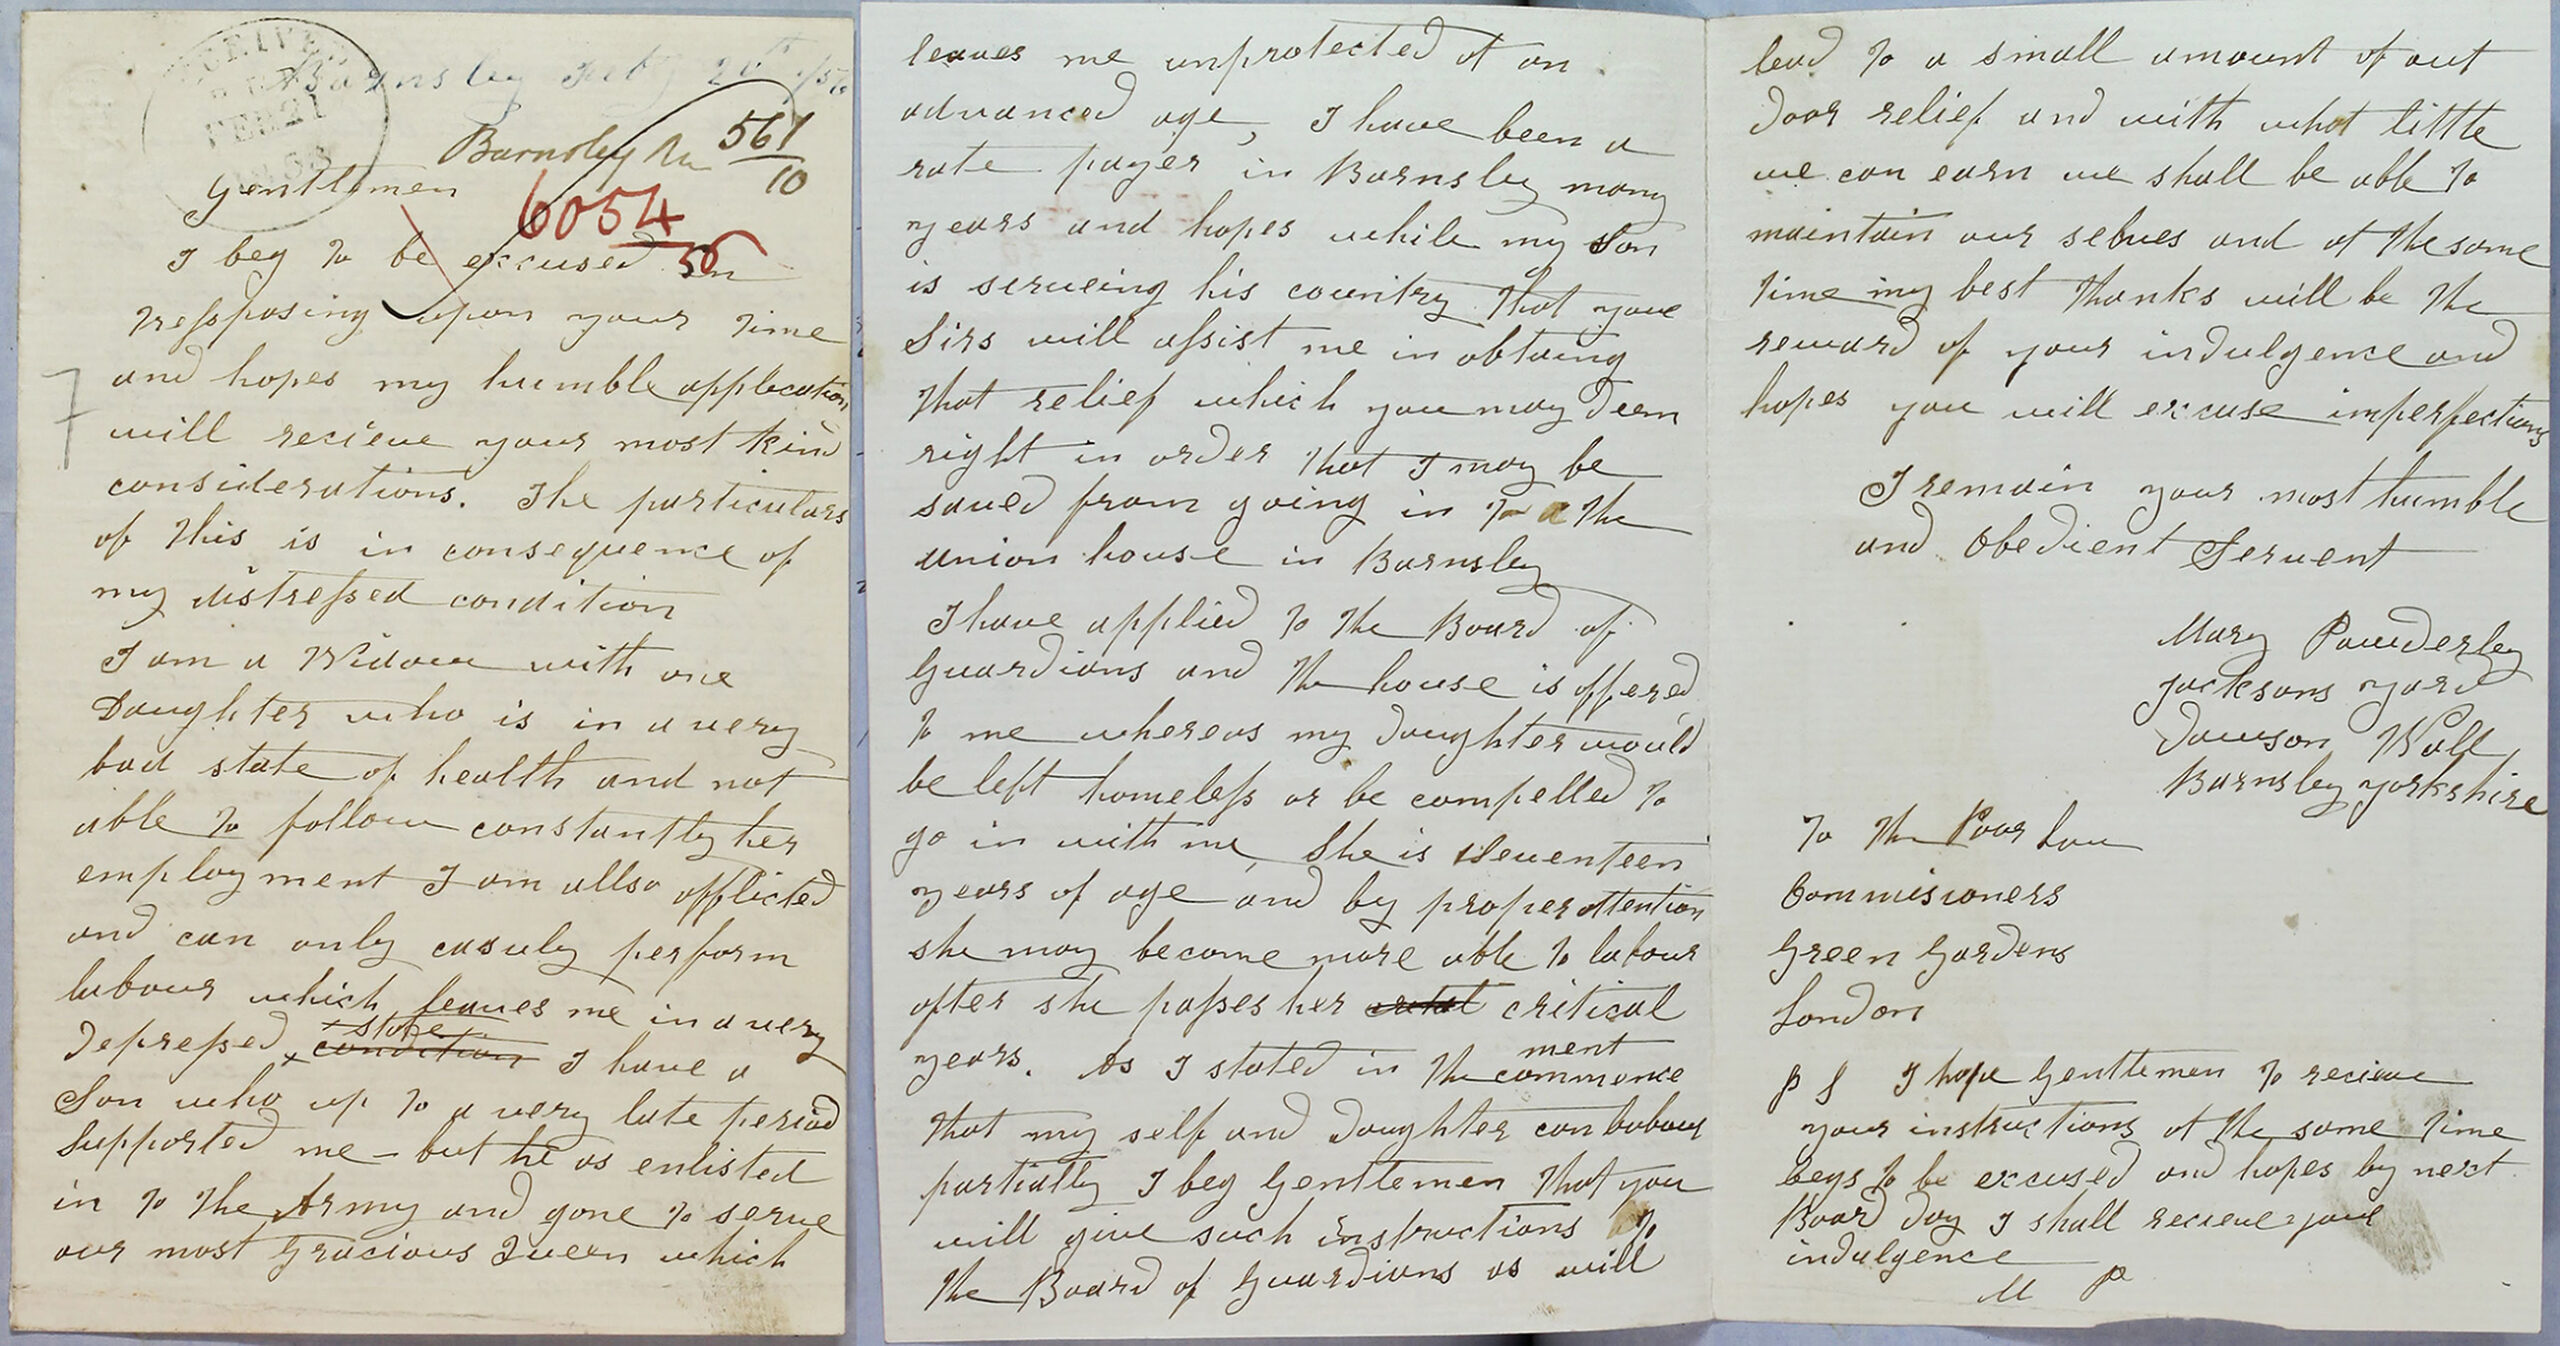 RECEIVED
FEB 21
Barnsley Feby 20th /56
Barnsley Un 561
10
6054
56
7
Gentlemen
I beg to be excused in
trespassing upon your time
and hopes my humble application
will recieve your most kind
considerations. The particulars
of this is in consequence of
my distressed condition
I am a Widow with one
Daughter who is in a very
bad state of health and not
able to follow constantly her
employment I am allso afflicted
and can only casuly perform
labour which leaves me in a very
depressed × state condition I have a
Son who up to a very late period
supported me – but he as enlisted
in to the Army and gone to serve
our most Gracious Queen which
leaves me unprotected at an
advanced age, I have been a
rate payer in Barnsley many
years and hopes while my Son
is serveing his country that youe
Sirs will assist me in obtaing
that relief which you may deem
right in order that I may be
saved from going in to the
union house in Barnsley
I have applied to the Board of
Guardians and the house is offered
to me whereas my daughter would
be left homeless or be compelled to
go in with me, She is seventeen
years of age and by proper attention
she may become more able to labour
after she passes her critical
years. As I stated in the commencement
that my self and daughter can labour
partially I beg Gentlemen that you
will give such instructions to
the Board of Guardians as will
lead to a small amount of out
door relief and with what little
we can earn we shall be able to
maintain our selves and at the same
time my best thanks will be the
reward of your indulgence and
hopes you will excuse imperfections
I remain your most humble
and Obedient Servent
Mary Powderley
Jacksons yard
Dawson Wall
Barnsley Yorkshire
To the Poor Law
Commisioners
Green Gardens
London
P S I hope Gentlemen to recieve
your instructions at the same time
begs to be excused and hopes by next
Board day I shall recieve youe
indulgence
M P